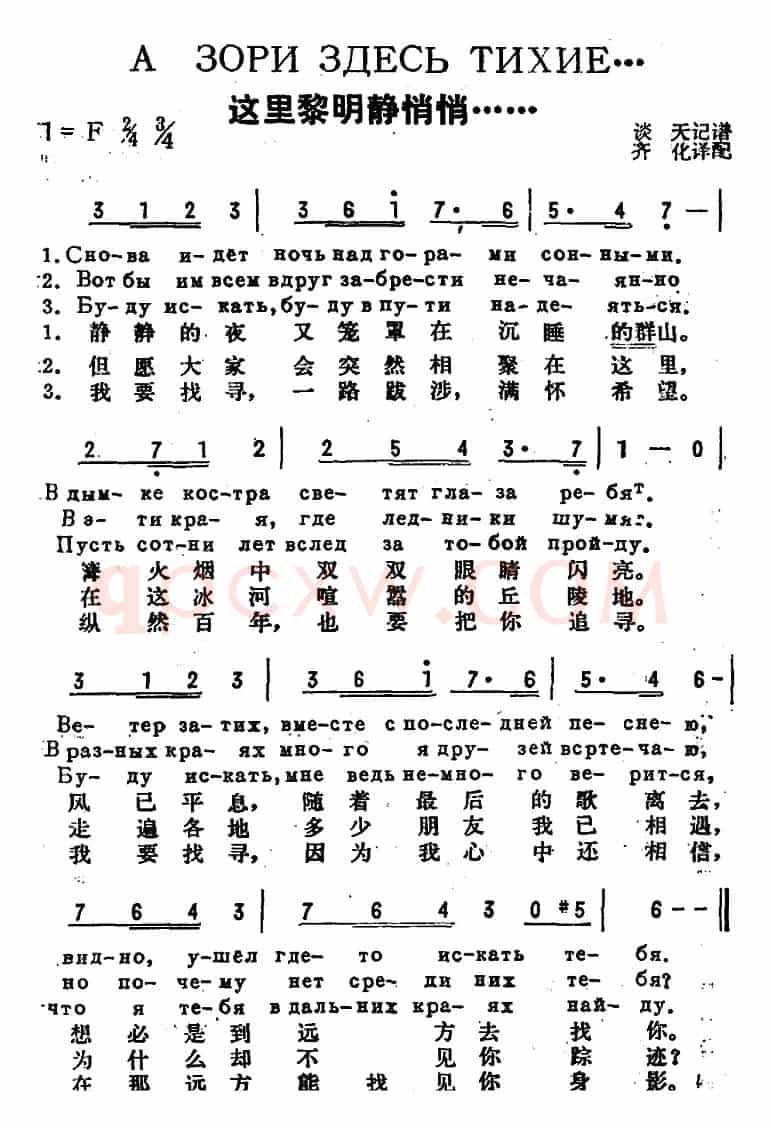 А ЗОРИ ЗДЕСЬ ТИХИЕ…
这里黎明静悄悄……
1=F 2/4 3/4
谈 天记谱
齐 化译配
3 1 2 3 | 3 6 i 7· 6 | 5· 4 7 — |
1. Сно-ва и-дёт ночь над го-ра-ми сон-ны-ми.
2. Вот бы им всем вдруг за-бре-сти не-ча-ян-но
3. Бу-ду ис-кать, бу-ду в пу-ти на-де-ять-ся.
1. 静静的夜又笼罩在沉睡的群山。
2. 但愿大家会突然相聚在这里,
3. 我要找寻,一路跋涉,满怀希望。
2 7 1 2 | 2 5 4 3· 7 | 1 — 0 |
В дым-ке кос-тра све-тят гла-за ре-бят.
В э-ти кра-я, где лед-ни-ки шу-мят.
Пусть сот-ни лет вслед за то-бой прой-ду.
篝火烟中双双眼睛闪亮。
在这冰河喧嚣的丘陵地。
纵然百年,也要把你追寻。
qpcxw.com
3 1 2 3 | 3 6 i 7· 6 | 5· 4 6 - |
Ве-тер за-тих, вмес-те с по-сле-дней пе-сне-ю,
В раз-ных кра-ях мно-го я дру-зей всрте-ча-ю,
Бу-ду ис-кать, мне ведь не-мно-го ве-рит-ся,
风已平息,随着最后的歌离去,
走遍各地多少朋友我已相遇,
我要找寻,因为我心中还相信,
7 6 4 3 | 7 6 4 3 0 #5 | 6 - - ‖
вид-но, у-шёл где-то ис-кать те-бя.
но по-че-му нет сре-ди них те-бя?
что я те-бя в даль-них кра-ях най-ду.
想必是到远方去找你。
为什么却不见你踪迹?
在那远方能找见你身影。